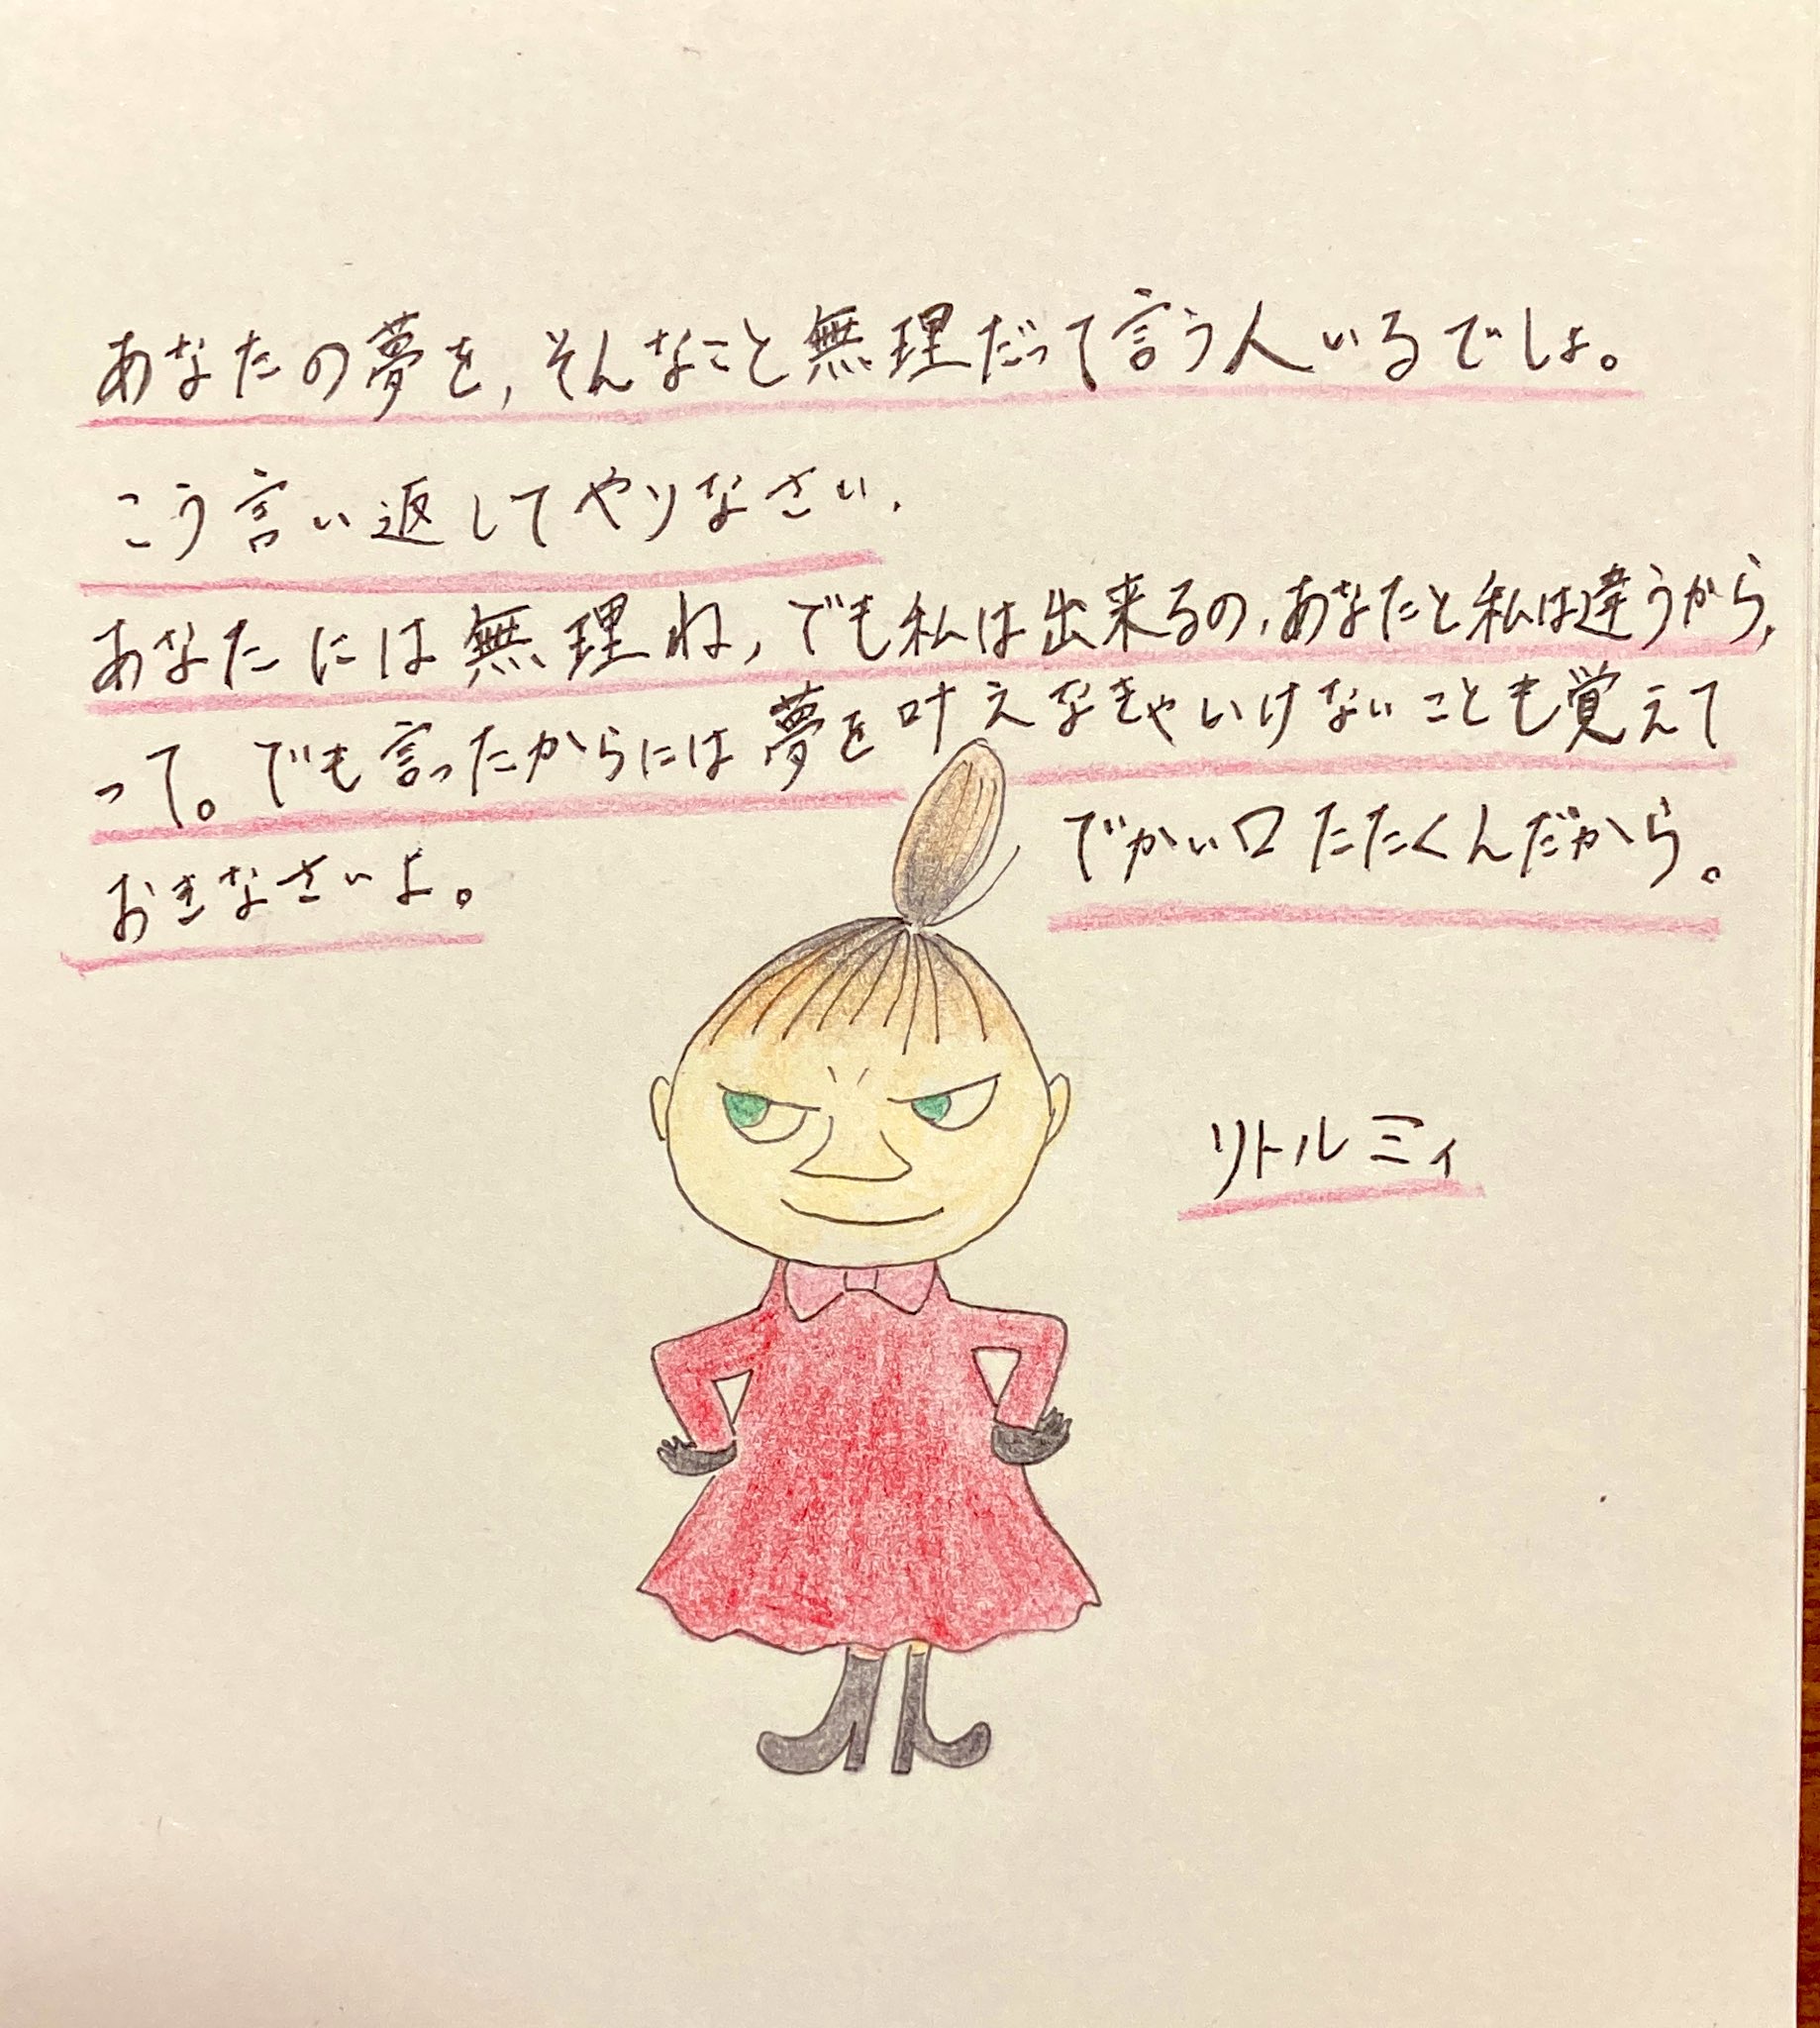 あなたの夢を,そんなこと無理だって言う人いるでしょ。
こう言い返してやりなさい.
あなたには無理ね,でも私は出来るの.あなたと私は違うから,
って。でも言ったからには夢を叶えなきゃいけないことも覚えて
おきなさいよ。 でかい口たたくんだから。
リトルミィ